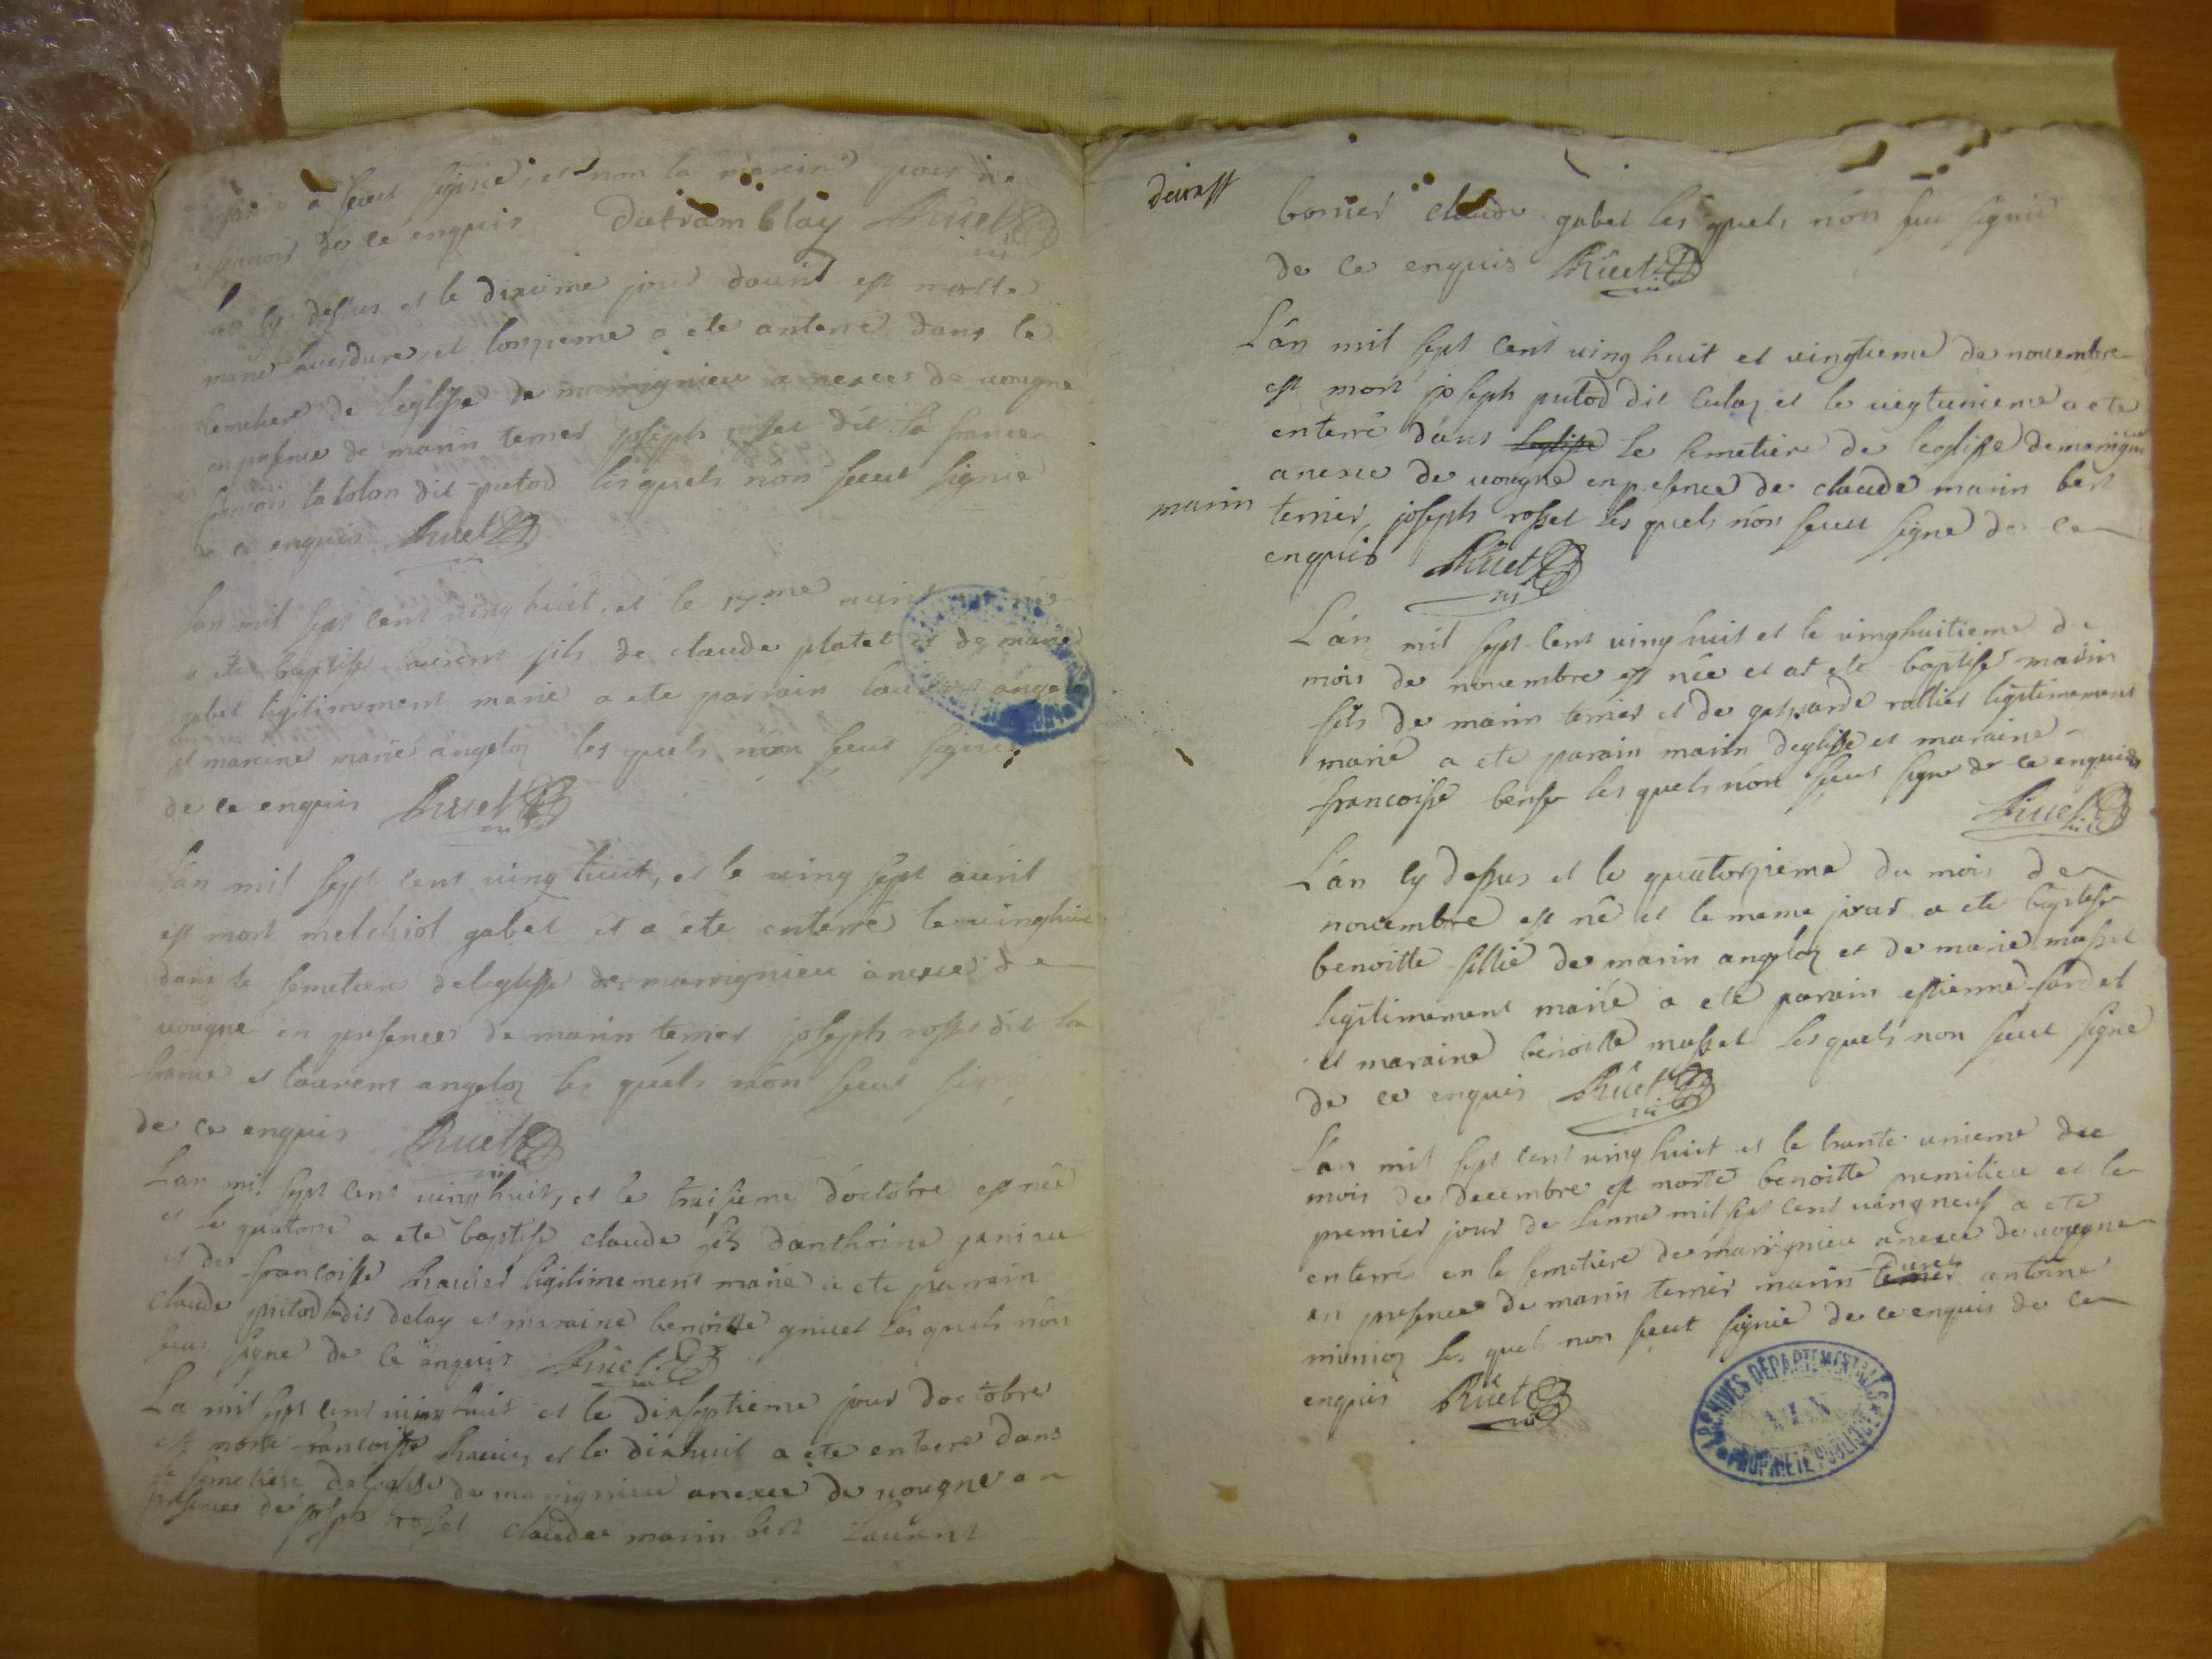 a sceut signie et non la mareine pour ne
de ce enquis Dutramblay Ruet
cy dessus et le dixieme jour davril est morte
marie et lonzieme a ete anterré dans le
semetiere de leglisse de marrignieu anexee de vougne
en presence de marin ternier joseph rosset dit la france
francois latolon dit putod lesquels nón sceut signié
de ce enquis Ruet
Lan mil sept cent ving huit, et le 17.me avril
a ete baptisse fils de claude platet et de marie
gabet ligitimement marié a ete parrain laurent angeloz
et mareine marie angeloz les quels nón sceut signié
de ce enquis Ruet
Lán mil sept cent ving huit, et le ving sept avril
est mort melchiol gabet et a ete enterré le vinghuit
dans le semetiere deleglisse de marrignieu anexee de
vougne en presence de marin ternier joseph rosset dit la
france et laurent angeloz les quels nón sceut signé
de ce enquis Ruet
Lan mil sept cent ving huit, et le traisieme dóctobre est née
et le quatorse a ete baptisse claude fils dánthoine
et de francoisse ligitimement marié a ete parrain
claude putod dit delay et maraine benoitte les quels nón
sceut signe de ce enquis Ruet
La mil sept cent ving huit et le dixseptieme jour doctobre
est morte francoisse et le dixhuit a ete enterre dans
le semetiere deleglisse de marrignieu anexee de vougne en
presence de joseph rosset claude marin bert laurent
bonier claude gabet les quels nón sceu signié
de ce enquis Ruet
Lán mil sept cent ving huit et vingtieme de novembre
est mort joseph putod dit culaz et le vegtunieme a ete
enterré dans leglisse le semetier de leglisse de marrignieu
anexee de vougne en presence de claude marin bert
marin ternier, joseph rosset les quels nón sceut signe de ce
enquis Ruet
Lán mil sept cent ving huit et le vinghuitieme de
mois de novembre est née et at ete baptisse marin
fils de marin ternier et de gasparde rattier ligitimement
marié a ete parain marin deglisse et maraine
francoisse les quels nón sceut signe de ce enquis
Ruet
Lán cy dessus et le quatorzieme du mois de
novembre est né et le meme jour a ete baptisse
benoitte fillie de marin angeloz et de marie musset
ligitimement marié a ete parain estienne fardet
et maraine benoitte musset les quels non sceut signe
de ce enquis Ruet
Lán mil sept cent ving huit et le trante unieme dee
mois de decembre est morte benoitte premilieu et le
premier jour de lanne mil sept cent ving neuf a ete
enterré en le semetiere de marrignieu anexee de vougne
en presence de marin ternier marin ternier antoine
les quels non sceut signié de ce enquis de ce
enquis Ruet
ARCHIVES DÉPARTEMENTALES
AIN
PROPRIÉTÉ PUBLIQUE